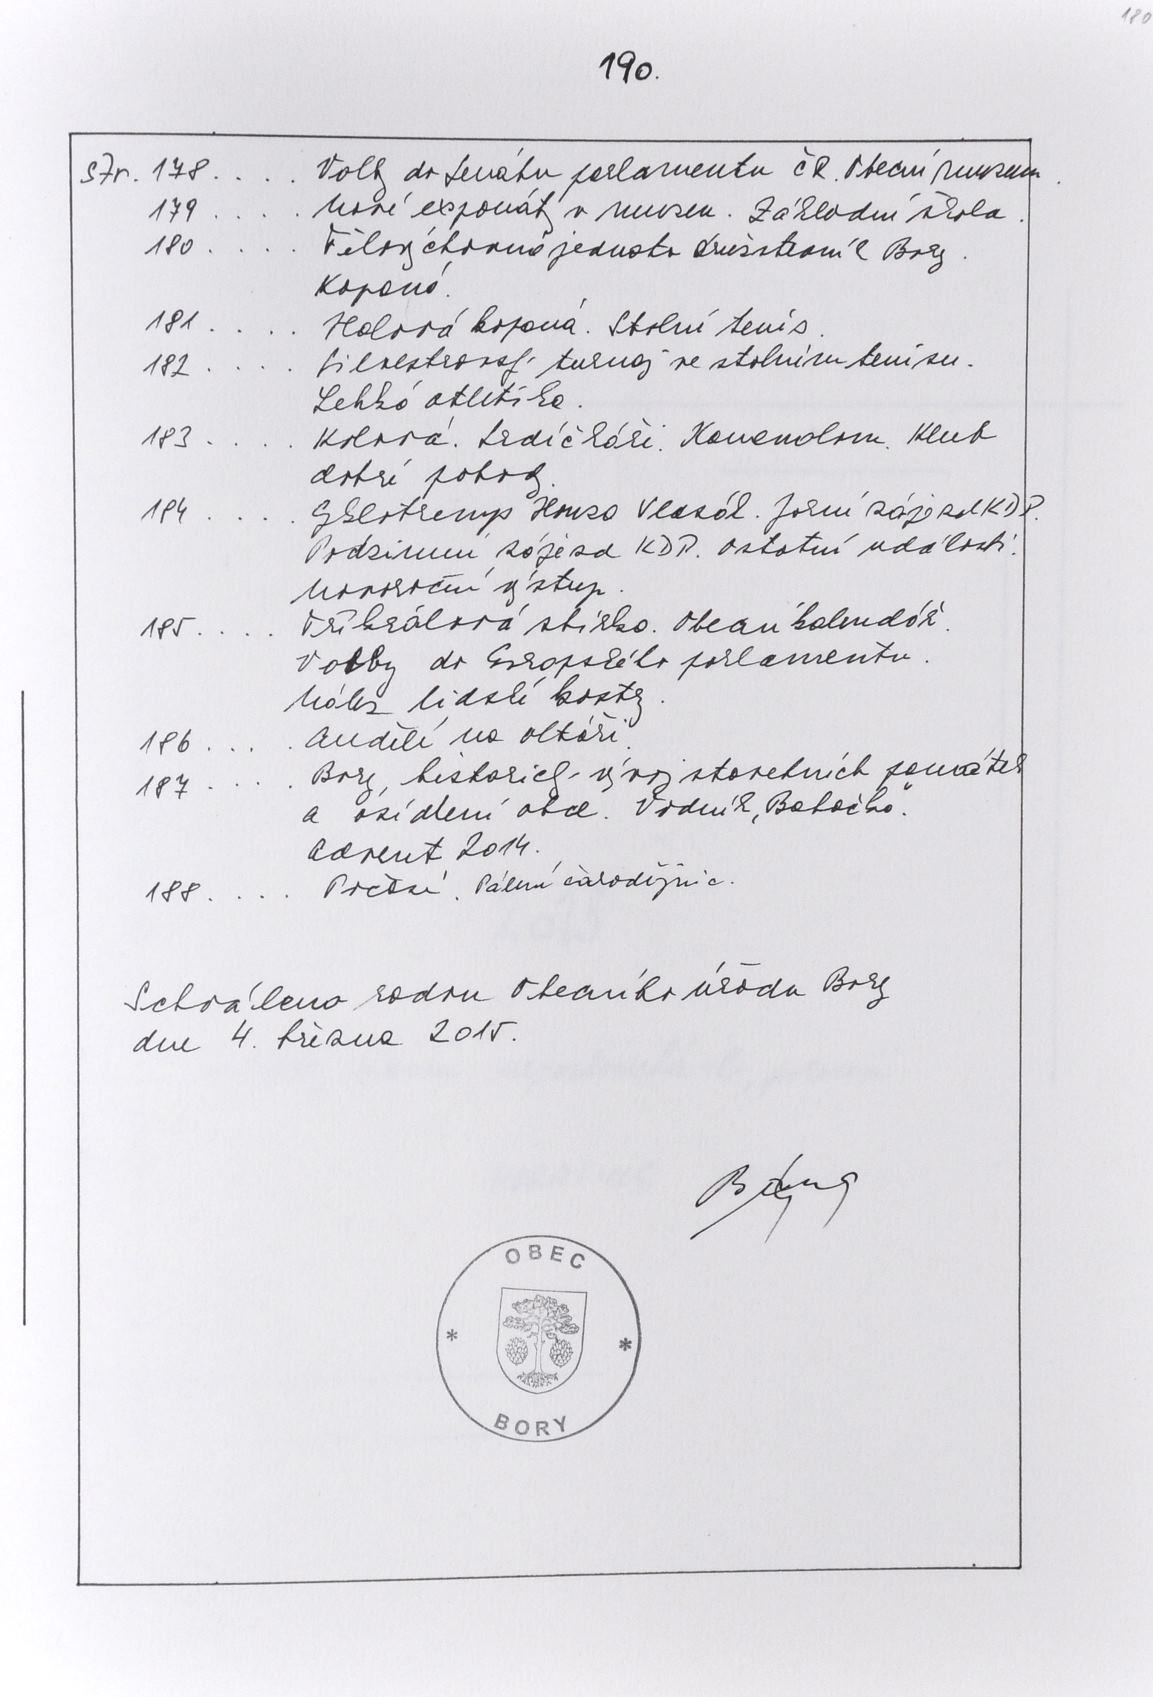 180
190.
Str. 178 . . . . Volby do Senátu parlamentu ČR. Obecní muzeum.
179 . . . . Nové exponáty v muzeu. Základní škola.
180 . . . . Tělovýchovná jednota Družstevník Bory.
Kopaná.
181 . . . . Halová kopaná. Stolní tenis.
182 . . . . Silvestrovský turnaj ve stolním tenisu.
Lehká atletika.
183 . . . . Kolová. Srdíčkáři. Klub
dobré pohody.
184 . . . . Cyklotremp Honza Vlasák. Jarní zájezd KDP.
Podzimní zájezd KDP. Ostatní události.
Novoroční výstup.
185 . . . . Tříkrálová sbírka. Obecní kalendář.
Volby do Evropského parlamentu.
Nález lidské kostry.
186 . . . . Andělé na oltáři.
187 . . . . Bory, historický vývoj stavebních památek
a osídlení obce. Vodník
Advent 2014.
188 . . . . Počasí. Pálení čarodějnic.
Schváleno radou Obecního úřadu Bory
dne 4. března 2015.
OBEC
* *
BORY